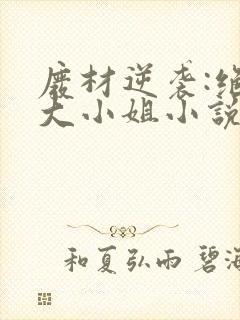 廢材逆袭:绝
大小姐小說
和夏弘雨 碧海